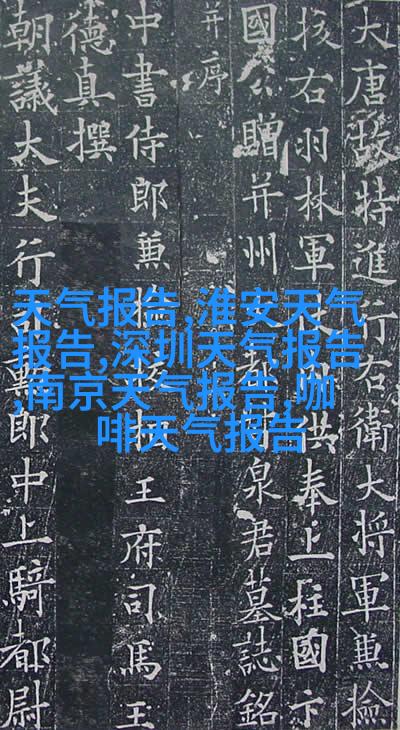 大唐故特進行右衛大將軍兼撿
挍右羽林軍供奉上柱國卞
國公贈并州都泉君墓誌銘
并序
中書侍郎兼王府司馬王
德真撰
朝議大夫行勳郎中上騎都尉
天气报告,淮安天气
报告,深圳天气报告
,南京天气报告,咖
啡天气报告